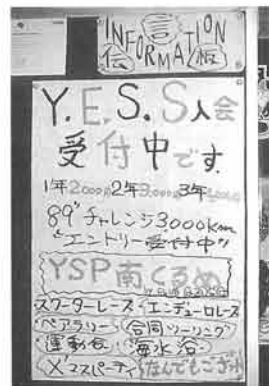 INFORMATION
伝言板
Y.E.S.S入会
受付中です.
1年2000円2年3000円3年
89'チャレンジ3000km
"エントリー受付中"
YSP南くるめ
スクーターレース エンデューロレース
ペアラリー 合同ツーリング
運動会 海水浴
X'マスパーティ なんでもござれ